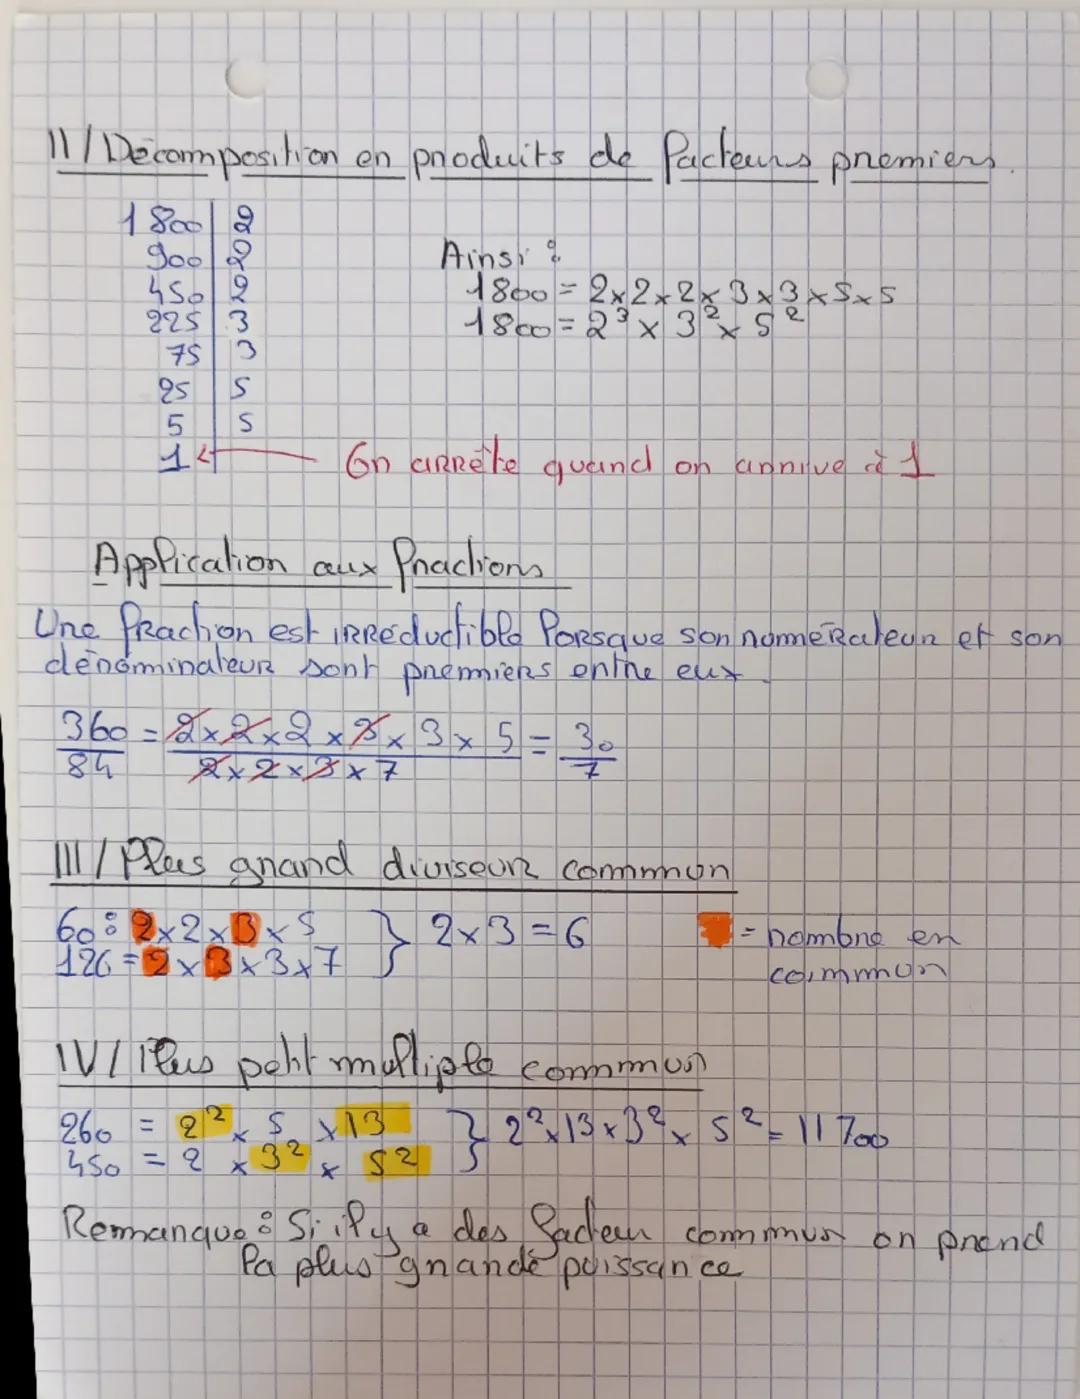 II/Décomposition en produits de facteurs premiers.
1800 | 2
900 | 2
450 | 2
225 | 3
75 | 3
25 | 5
5 | 5
1 ← On arrête quand on arrive à 1
Ainsi :
1800 = 2×2×2×3×3×5×5
1800 = 2³ × 3² × 5²
Application aux fractions
Une fraction est irréductible lorsque son numérateur et son
dénominateur sont premiers entre eux.
360/84 = 2×2×2×3×3×5 / 2×2×3×7 = 30/7
III/Plus grand diviseur commun
60 : 2×2×3×5
126 = 2×3×3×7 } 2×3 = 6
= nombre en
commun
IV/Plus petit multiple commun
260 = 2² × 5 × 13
450 = 2 × 3² × 5² } 2²×13×3²×5² = 11700
Remarque : Si il y a des facteur commun on prend
la plus grande puissance